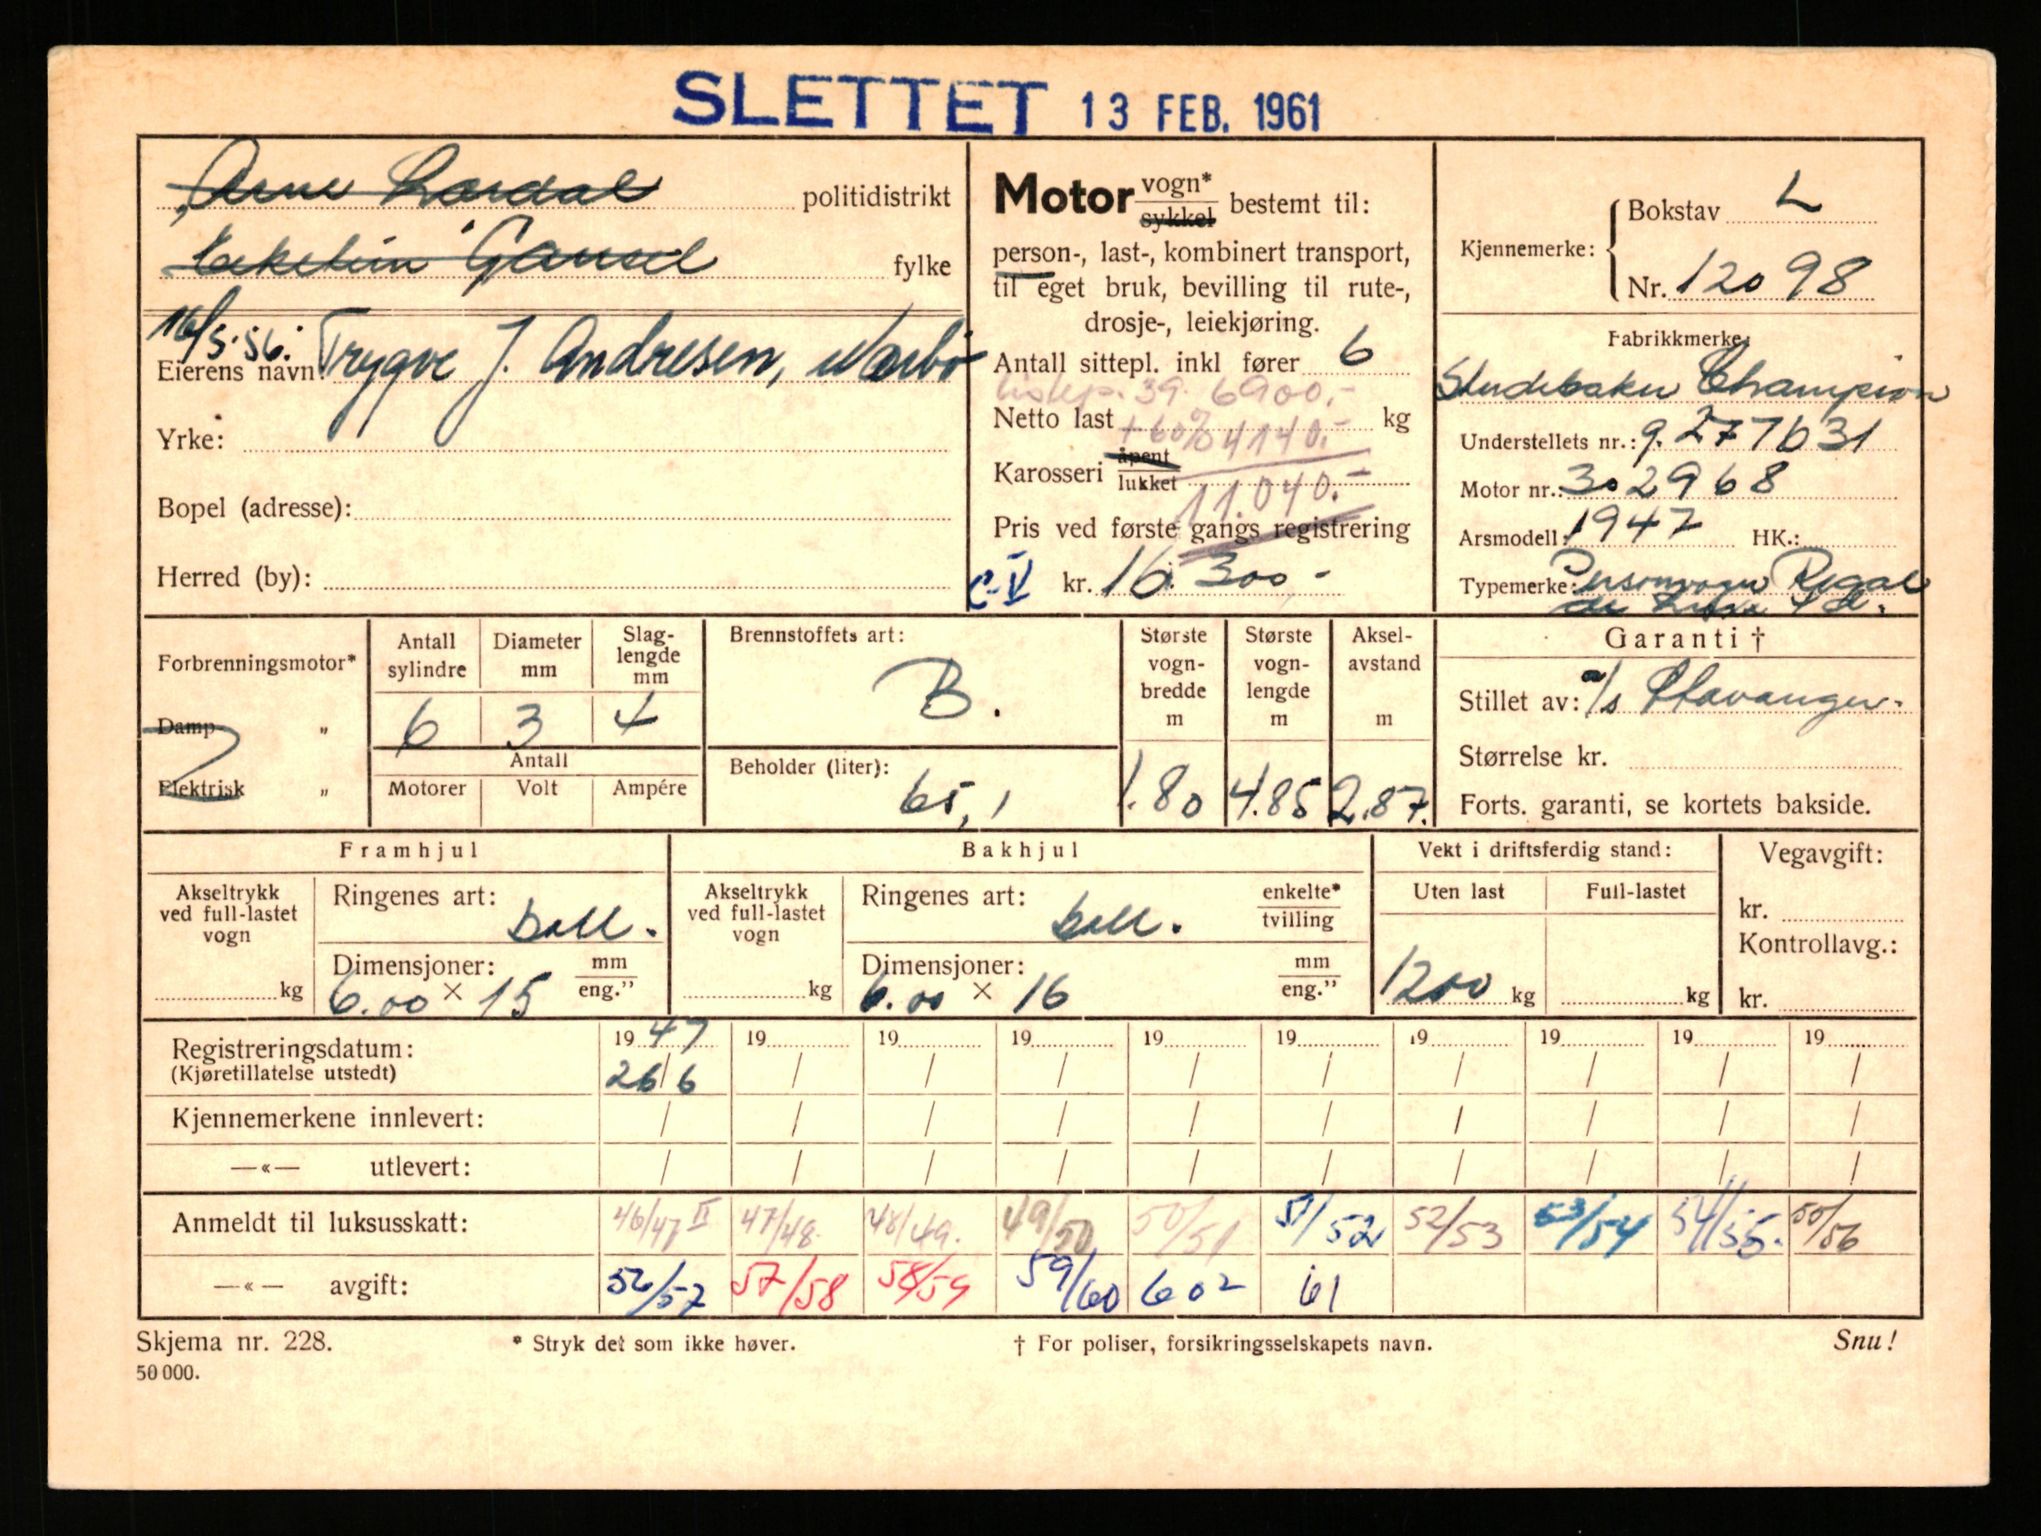 SLETTET 13 FEB. 1961
Arne Lardal politidistrikt
Gausel fylke
16/5.56.
Eierens navn: Trygve J. Andresen, Nærbø
Yrke:
Bopel (adresse):
Herred (by):
Motor vogn* / sykkel bestemt til:
person-, last-, kombinert transport,
til eget bruk, bevilling til rute-,
drosje-, leiekjøring.
Antall sittepl. inkl fører 6
Listep. 39. 6900.-
Netto last kg
+ 60% 4140.-
Karosseri åpent / lukket
11.040.-
Pris ved første gangs registrering
C-V kr. 16.300,-
Kjennemerke: Bokstav L
Nr. 12098
Fabrikkmerke:
Studebaker Champion
Understellets nr.: g. 277631
Motor nr.: 302968
Arsmodell: 1947 HK.:
Typemerke: Personvogn Regal
de
Forbrenningsmotor*
Damp "
Elektrisk "
Antall sylindre
Diameter mm
Slag-lengde mm
6 3 4
Antall
Motorer Volt Ampére
Brennstoffets art:
B.
Beholder (liter):
65,1
Største vogn-bredde m
Største vogn-lengde m
Aksel-avstand m
1.80 4.85 2.87.
Garanti †
Stillet av: a/s Stavanger.
Størrelse kr.
Forts. garanti, se kortets bakside.
Framhjul
Akseltrykk ved full-lastet vogn
kg
Ringenes art:
ball.
Dimensjoner: mm / eng."
6.00 × 15
Bakhjul
Akseltrykk ved full-lastet vogn
kg
Ringenes art: enkelte* / tvilling
ball.
Dimensjoner: mm / eng."
6.00 × 16
Vekt i driftsferdig stand:
Uten last Full-lastet
1200 kg kg
Vegavgift:
kr.
Kontrollavg.:
kr.
Registreringsdatum: 1947 19 19 19 19 19 19 19 19 19
(Kjøretillatelse utstedt) 26/6 / / / / / / / / /
Kjennemerkene innlevert: / / / / / / / / / /
—«— utlevert: / / / / / / / / / /
Anmeldt til luksusskatt: 46/47 II 47/48 48/49. 49/50 50/51 51/52 52/53 53/54 54/55. 55/56
—«— avgift: 56/57 57/58 58/59 59/60 602 61
Skjema nr. 228. * Stryk det som ikke høver. † For poliser, forsikringsselskapets navn. Snu!
50 000.